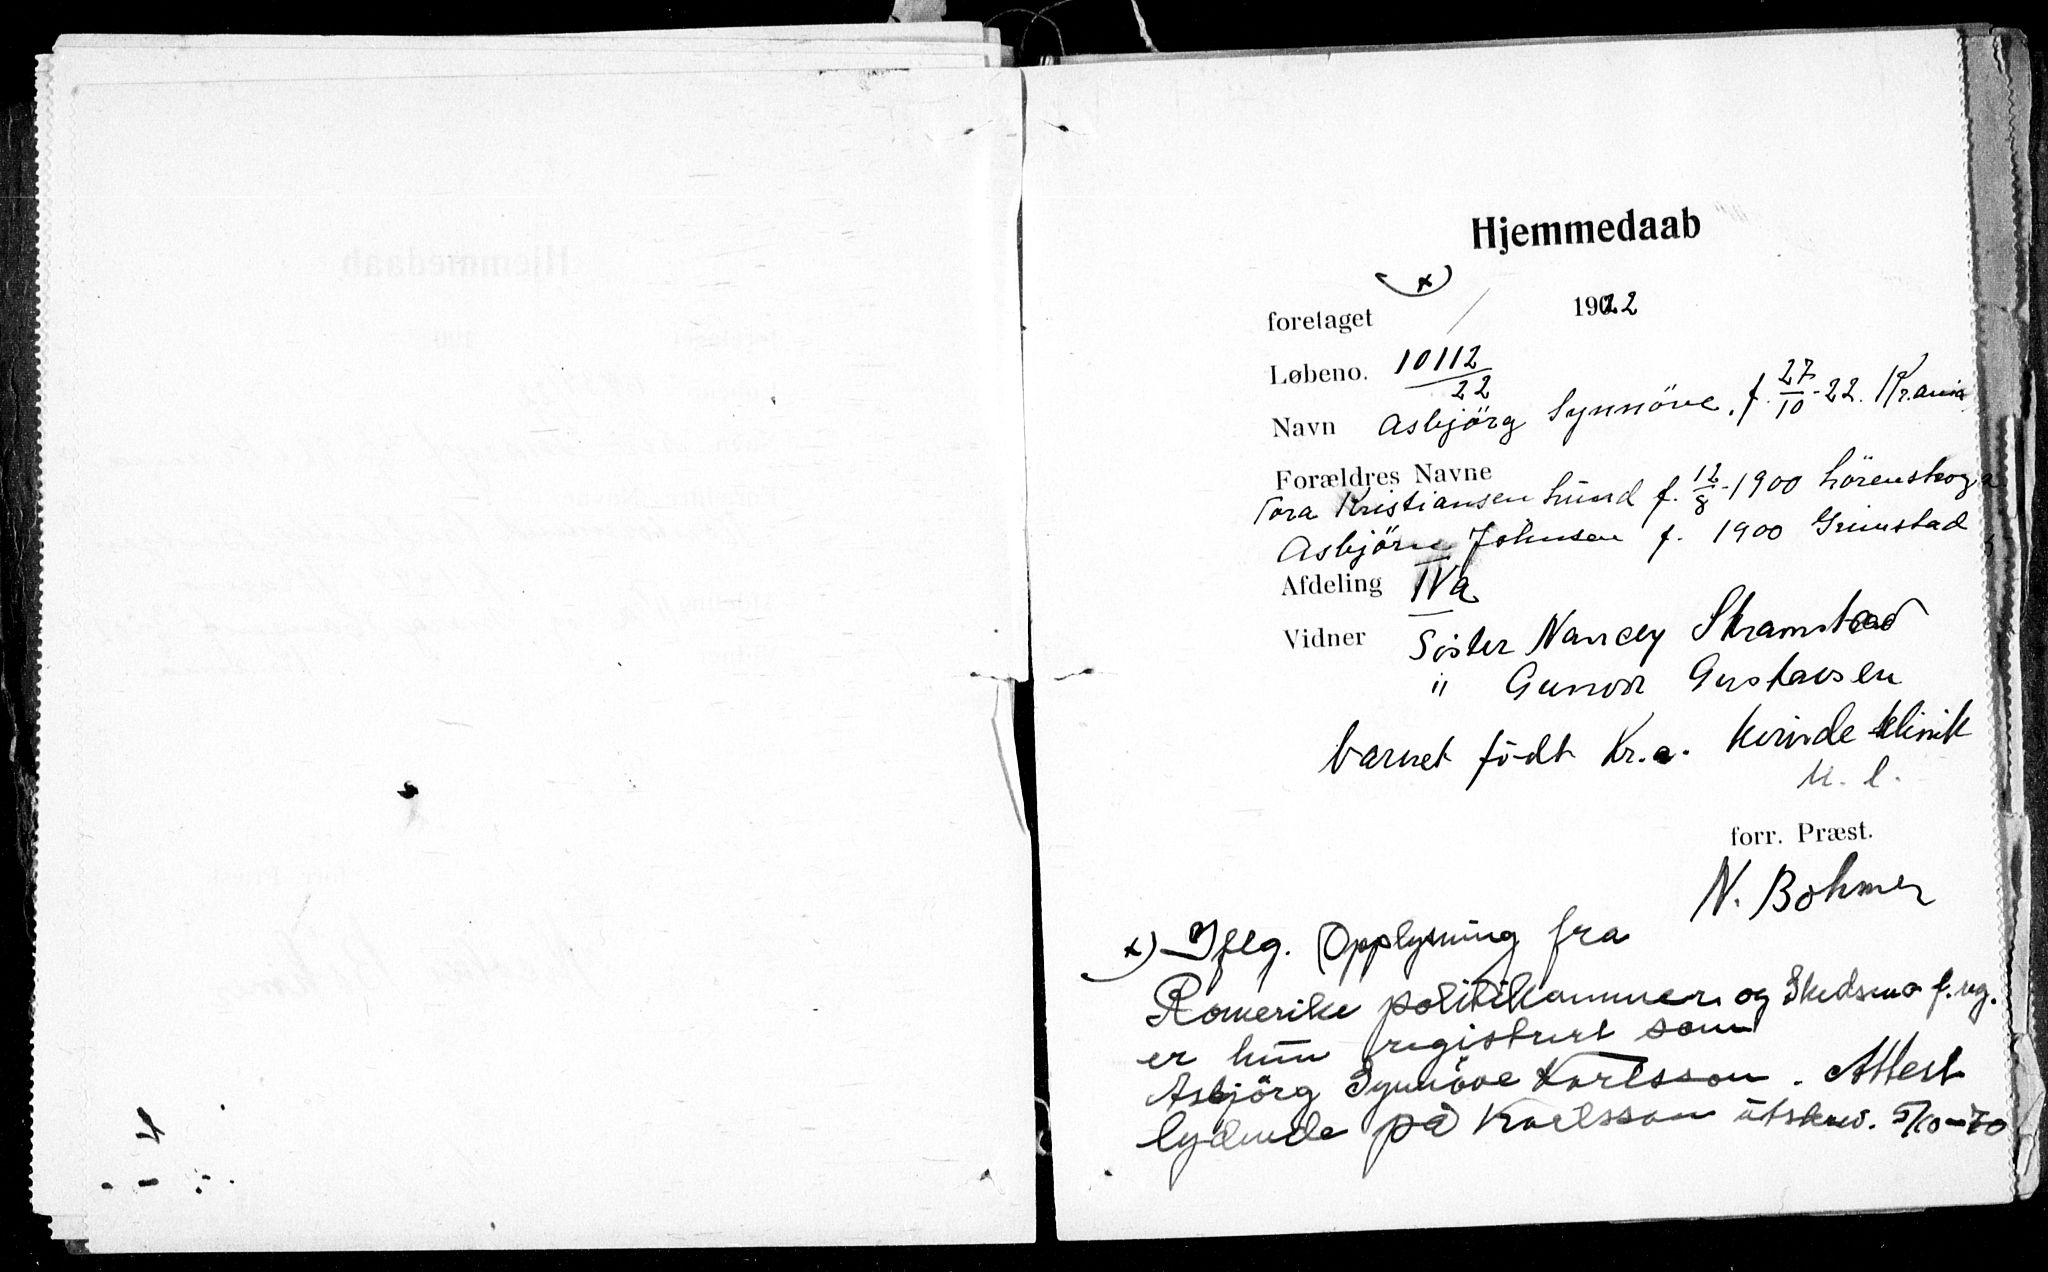 Hjemmedaab
x)
foretaget / 1922
Løbeno. 10112/22
Navn Asbjörg Synnöve, f. 27/10-22. Kr.ania
Forældres Navne
Tora Kristiansen Lund f. 12/8-1900 Lörenskog
Asbjörn Johnsen f. 1900 Grimstad
Afdeling IVa
Vidner Söster Nancy Skramstad
" Gunvor Gustavsen
barnet födt Kr.a. Kvindeklinik
u. e.
forr. Præst.
N. Bohmer
x) Iflg. Opplysning fra
Romerike politikammer og Skedsmo f.reg.
er hun registrert som
Asbjörg Synnöve Karlsson. Attest
lydende på Karlsson utskrev. 5/10-70